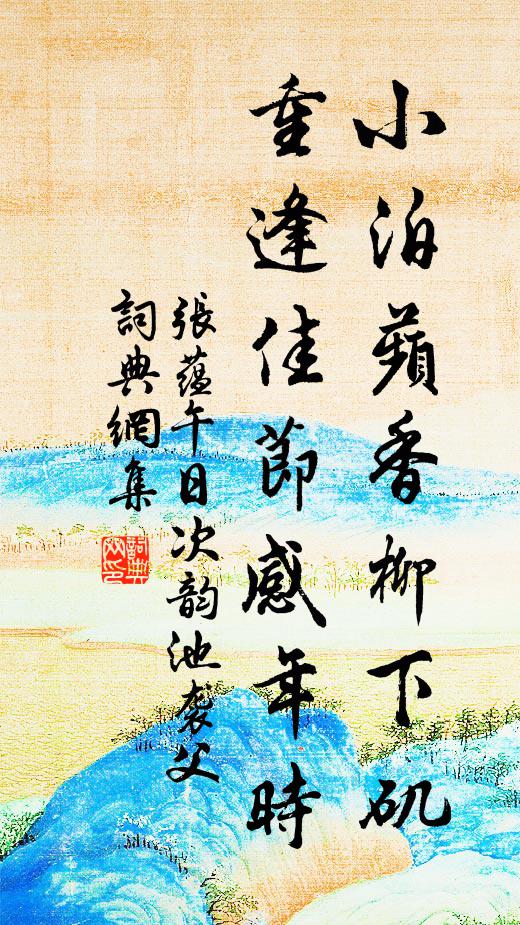 小泊蘋香柳下矶
重逢佳節感年時
張蕴午日次韵池袭父
詞典網集
詞典網印